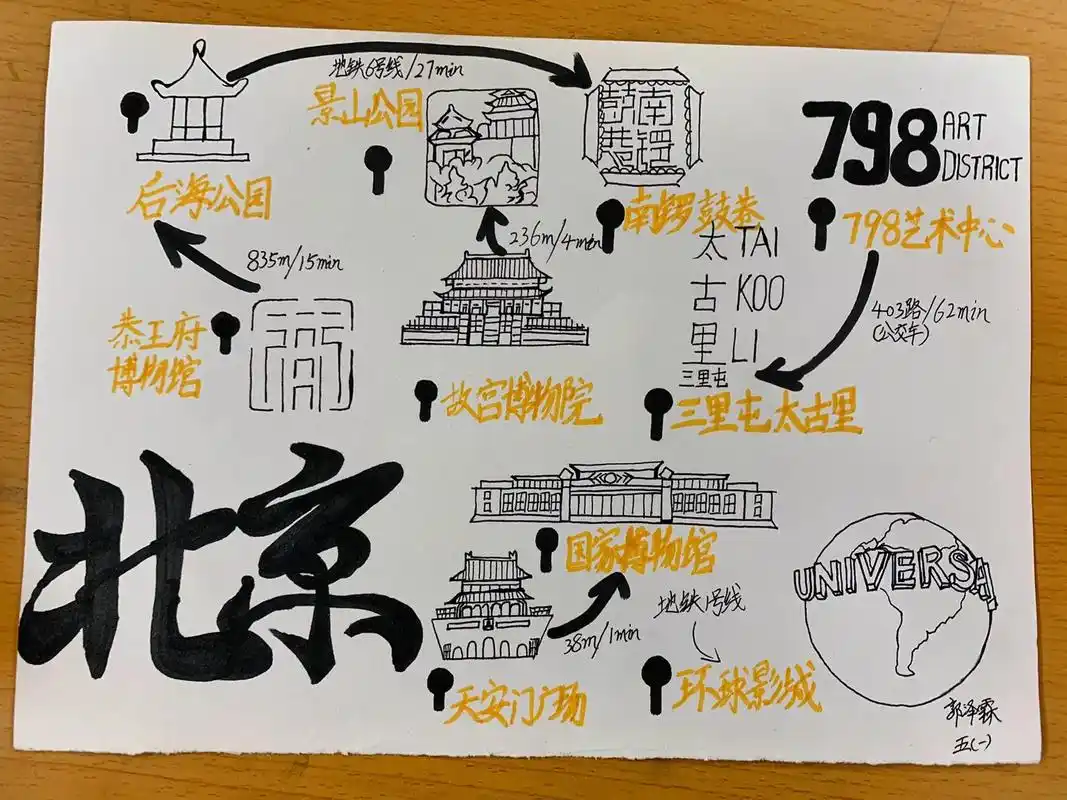 地铁6号线/27min
景山公园
南锣
鼓巷
798 ART
DISTRICT
后海公园
南锣鼓巷
798艺术中心
835m/15min
236m/4min
太 TAI
古 KOO
里 LI
三里屯
403路/62min
(公交车)
恭王府
博物馆
故宫博物院
三里屯太古里
北京
国家博物馆
38m/1min
地铁1号线
UNIVERSAL
天安门广场
环球影城
郭泽霖
五(一)